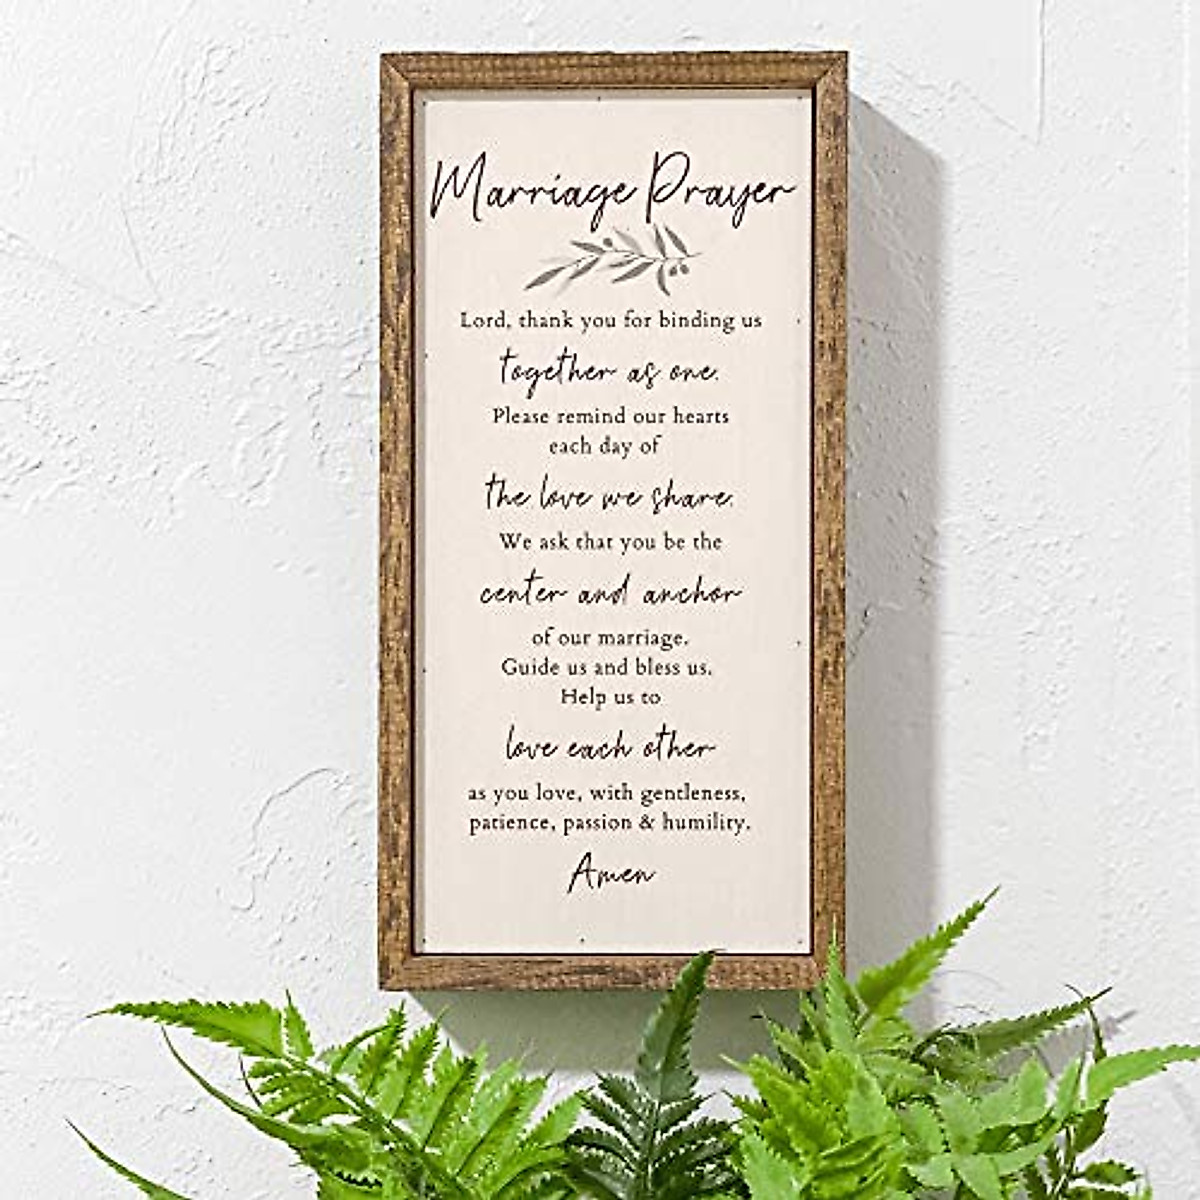 Marriage Prayer
Lord, thank you for binding us
together as one.
Please remind our hearts
each day of
the love we share.
We ask that you be the
center and anchor
of our marriage.
Guide us and bless us.
Help us to
love each other
as you love, with gentleness,
patience, passion & humility.
Amen